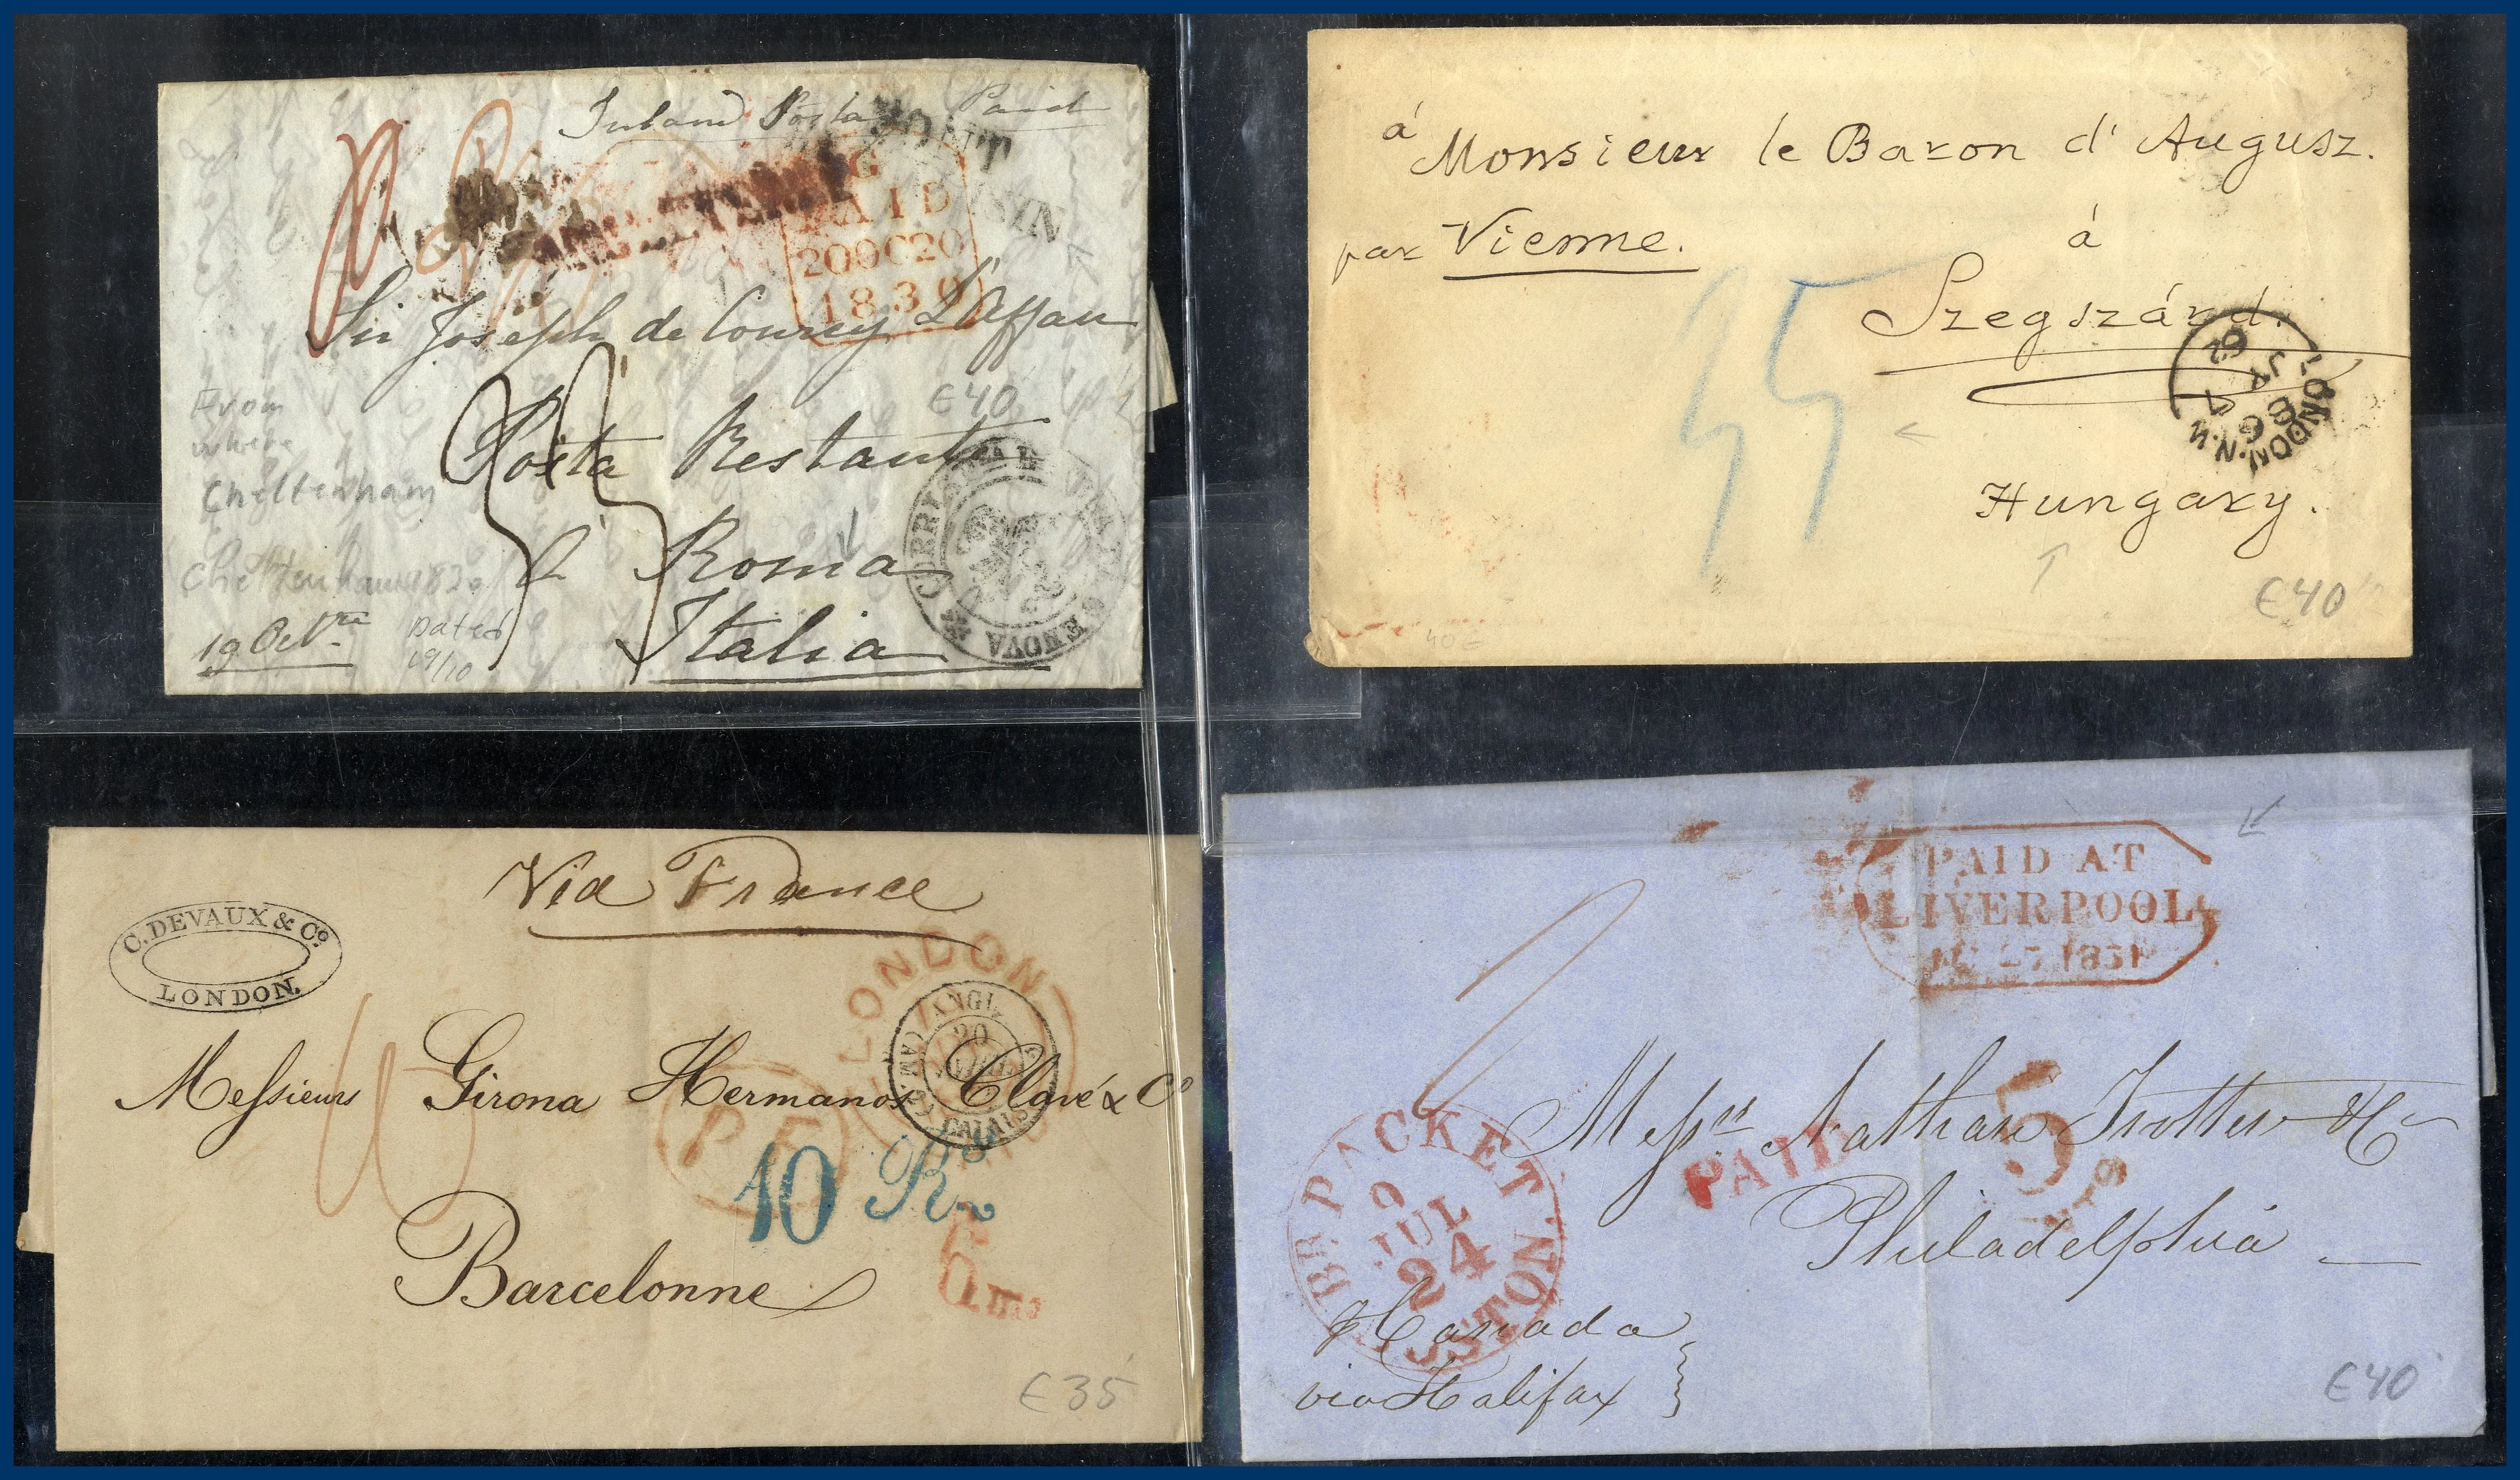 Inland Posta Paid
PONT
G
PAID
20OC20
1830
Sir Joseph de Courcy Laffan
€40
From
where
Cheltenham
Posta Restante
à Roma
Italia
CORRISP
GENOVA
19 Octre
Dated
19/10
à
Monsieur le Baron d'Augusz.
par Vienne.
à
Szegszárd.
Hungary.
35
LONDON.N.W.
€40
40€
Via France
C. DEVAUX & Co.
LONDON.
LONDON
ANGL.
20
CALAIS
Messieurs Girona Hermanos Clavé & Co
P.F.
10 Rs
Barcelonne
€35
PAID AT
LIVERPOOL
1851
Messrs Nathan Trotter & Co
PAID
5
CTS
Philadelphia
BR. PACKET
JUL
24
BOSTON
p Canada
via Halifax
€40